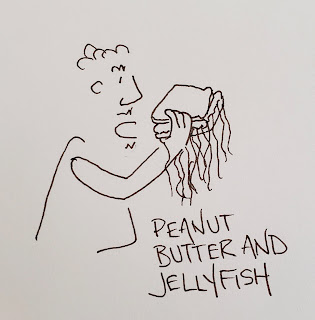 PEANUT
BUTTER AND
JELLYFISH